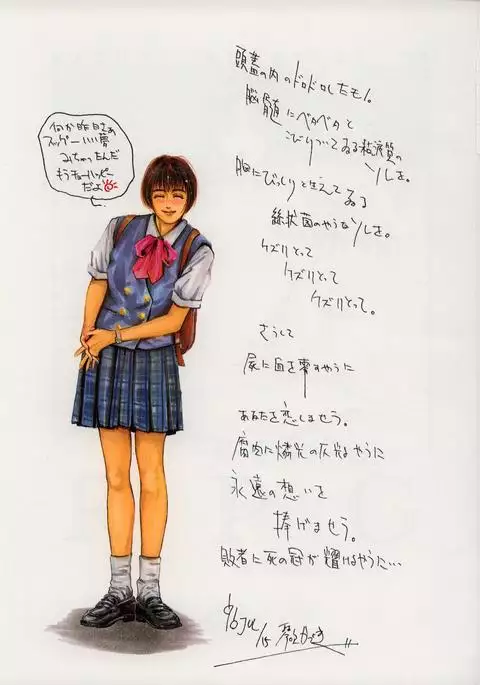 何か昨日さぁ
スッゲーいい夢
みちゃったんだ
もうチョーハッピー
だよ
頭蓋の内のドロドロしたモノ。
脳髄にベタベタと
こびりついてゐる粘液質の
ソレを。
胸にびっしりと生えてゐる
絲状菌のやうなソレを。
ケズリとって
ケズリとって
ケズリとって。
さうして
屍に血を零すやうに
あなたを恋しませう。
腐肉に燐光の灰光るやうに
永遠の想いを
捧げませう。
敗者に死の冠が耀けるやうに…